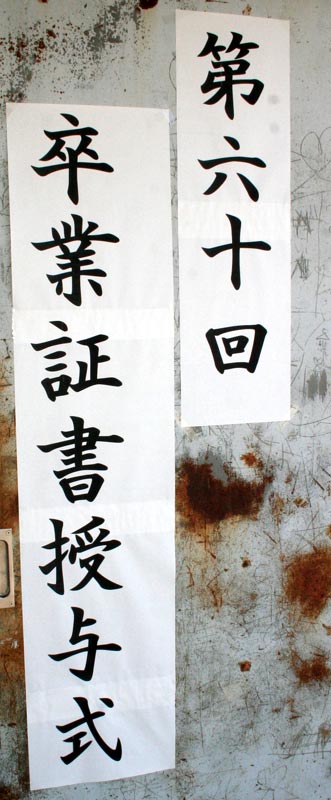 第六十回
卒業証書授与式